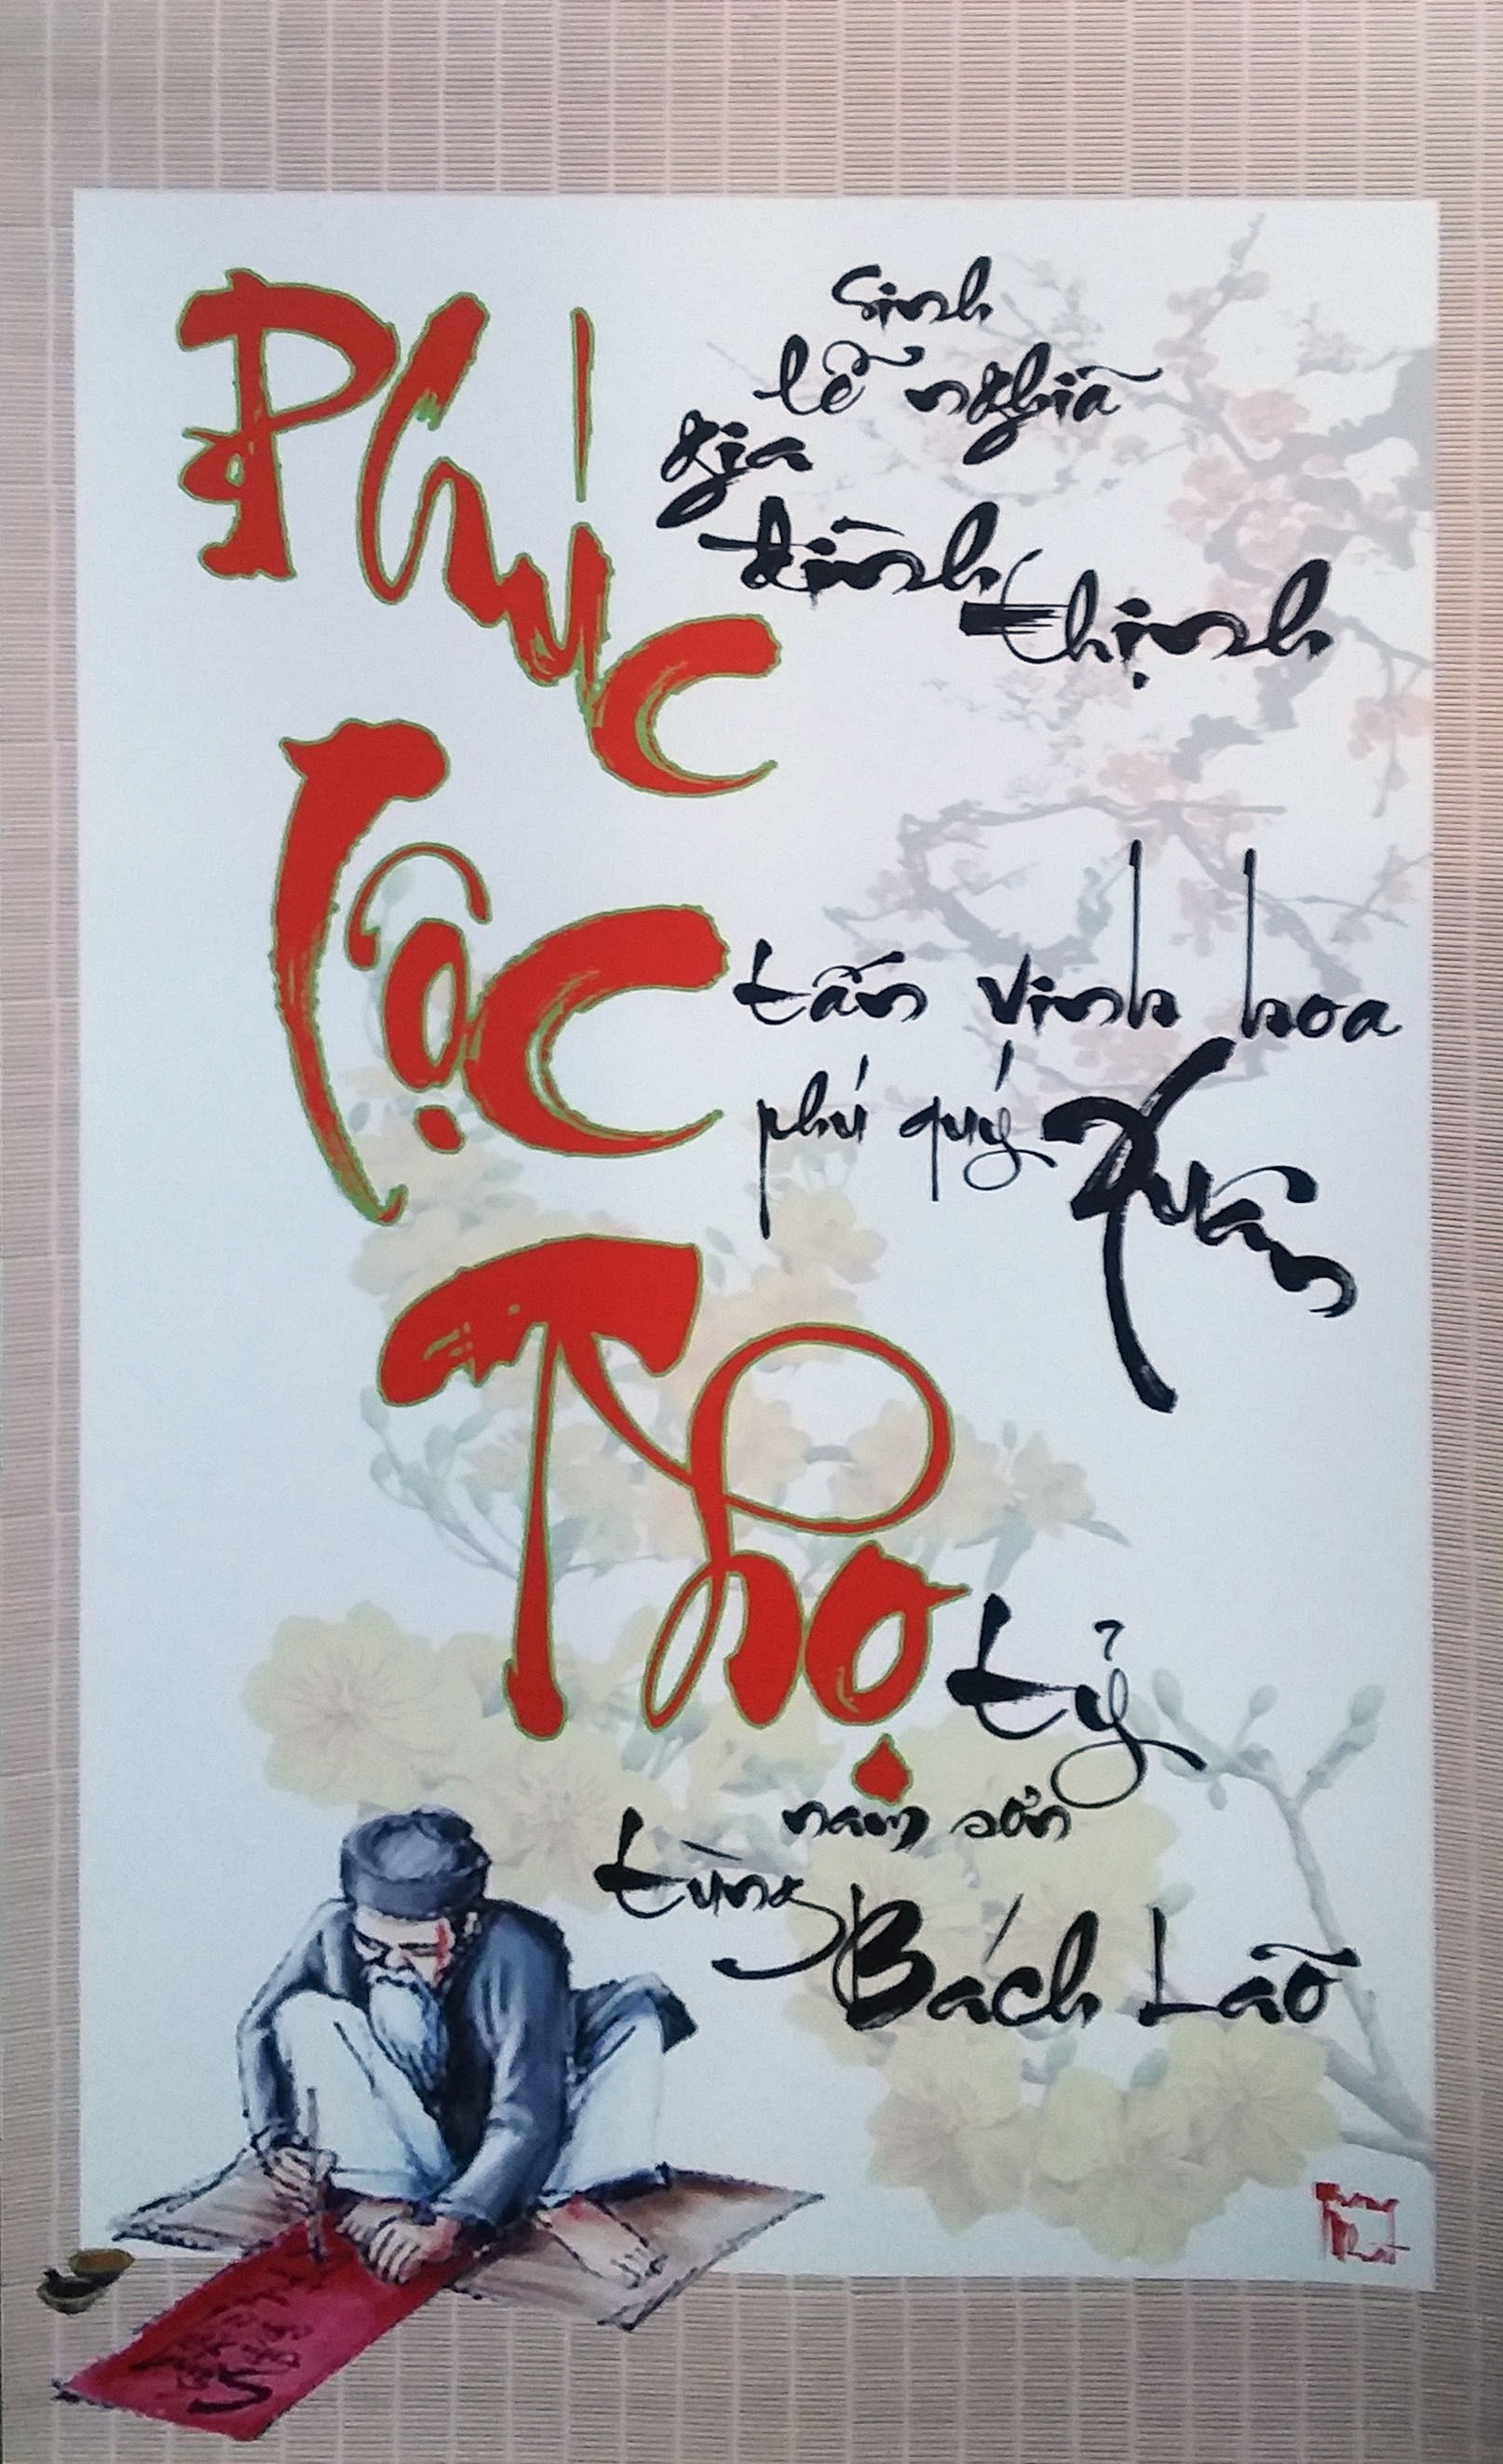 Phúc
sinh
lễ nghĩa
gia
đình thịnh
Lộc
tấn vinh hoa
phú quý Xuân
Thọ
tỷ
nam sơn
tùng
Bách Lão